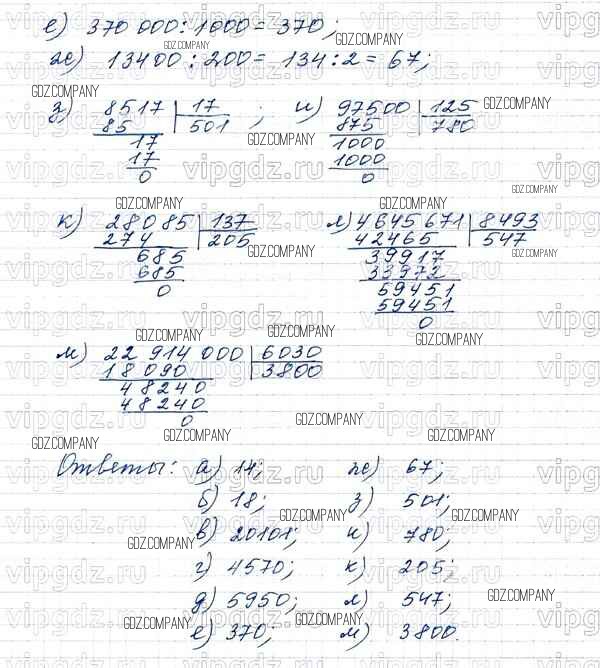 е) 370 000 : 1000 = 370;
ж) 13400 : 200 = 134 : 2 = 67;
з) 8517 | 17 ; и) 97500 | 125
85 | 501 875 | 780
17 1000
17 1000
0 0
к) 28085 | 137 л) 4645671 | 8493
274 | 205 42465 | 547
685 39917
685 33972
0 59451
59451
0
м) 22 914 000 | 6030
18 090 | 3800
48240
48240
0
Ответы: а) 14; ж) 67;
б) 18; з) 501;
в) 20101; и) 780;
г) 4570; к) 205;
д) 5950; л) 547;
е) 370; м) 3800.
vipgdz.ru
GDZ.COMPANY